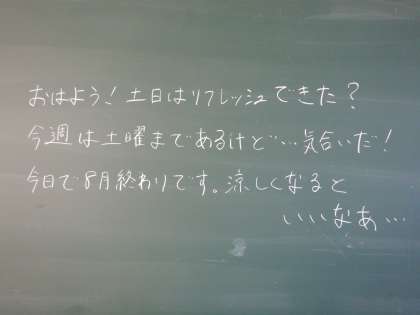 おはよう！土日はリフレッシュできた？
今週は土曜まであるけど…気合いだ！
今日で8月終わりです。涼しくなると
いいなぁ…